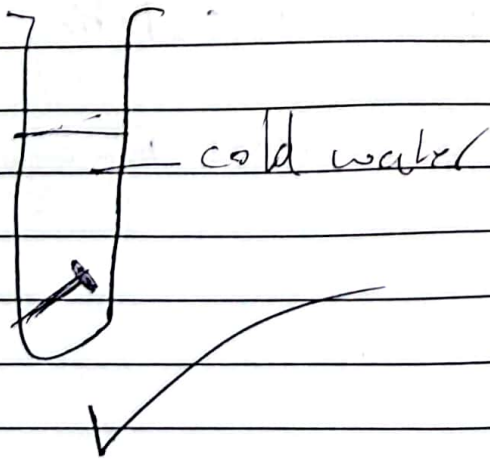 cold water